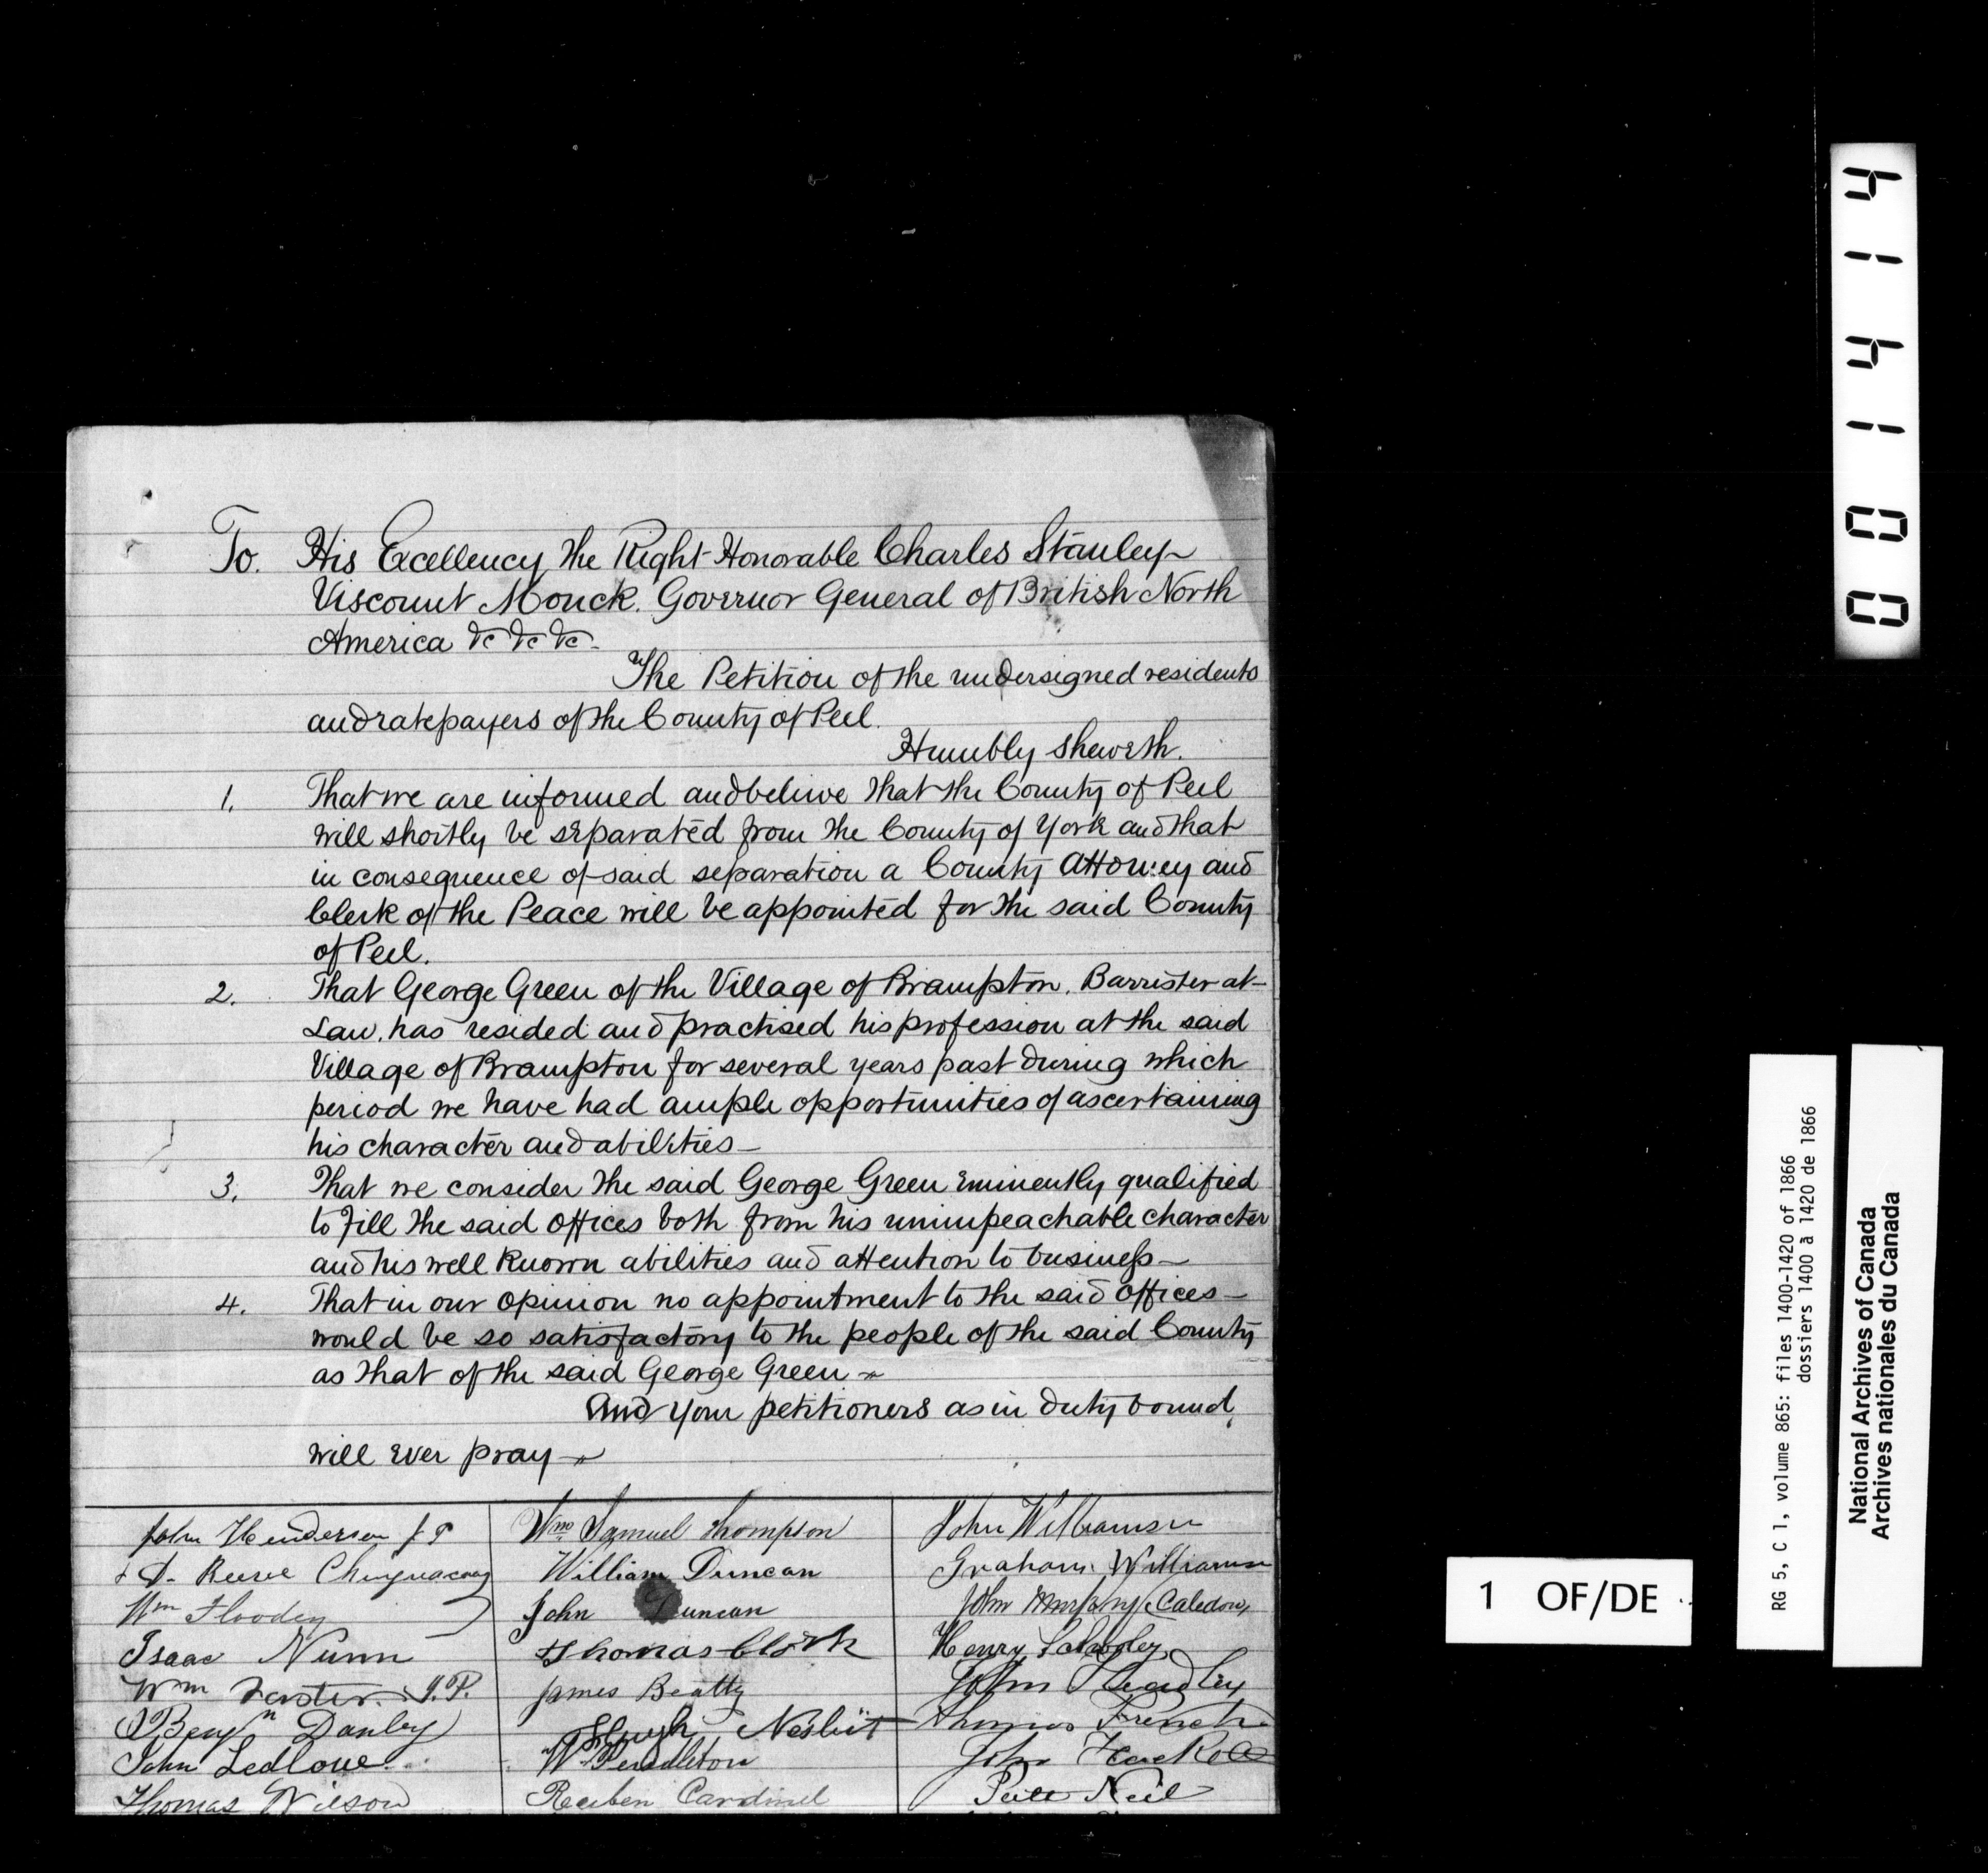 To. His Excellency the Right Honorable Charles Stanley
Viscount Monck. Governor General of British North
America &c &c &c.
The Petition of the undersigned residents
and ratepayers of the County of Peel.
Humbly sheweth.
1. That we are informed and believe that the County of Peel
will shortly be separated from the County of York and that
in consequence of said separation a County Attorney and
Clerk of the Peace will be appointed for the said County
of Peel.
2. That George Green of the Village of Brampton. Barrister-at-
Law, has resided and practised his profession at the said
Village of Brampton for several years past during which
period we have had ample opportunities of ascertaining
his character and abilities—
3. That we consider the said George Green eminently qualified
to fill the said offices both from his unimpeachable character
and his well known abilities and attention to business—
4. That in our opinion no appointment to the said offices—
would be so satisfactory to the people of the said County
as that of the said George Green—
And your petitioners as in duty bound,
will ever pray—
John Henderson J P
D. Reeve Chinguacousy
Wm
Isaac Nunn
Wm Foster J.P.
Benjn Danley
John Ledlowe
Thomas Wilson
Wm Samuel Thompson
William Duncan
John Duncan
Thomas Clark
James Beatty
Hugh Nesbitt
W Pendleton
Reuben Cardinel
John Williamson
Graham Williamson
John Caledon
Henry
John
Thomas French
John
Neil
0 0 1 4 1 4
1 OF/DE
RG 5, C 1, volume 865: files 1400-1420 of 1866
dossiers 1400 à 1420 de 1866
National Archives of Canada
Archives nationales du Canada